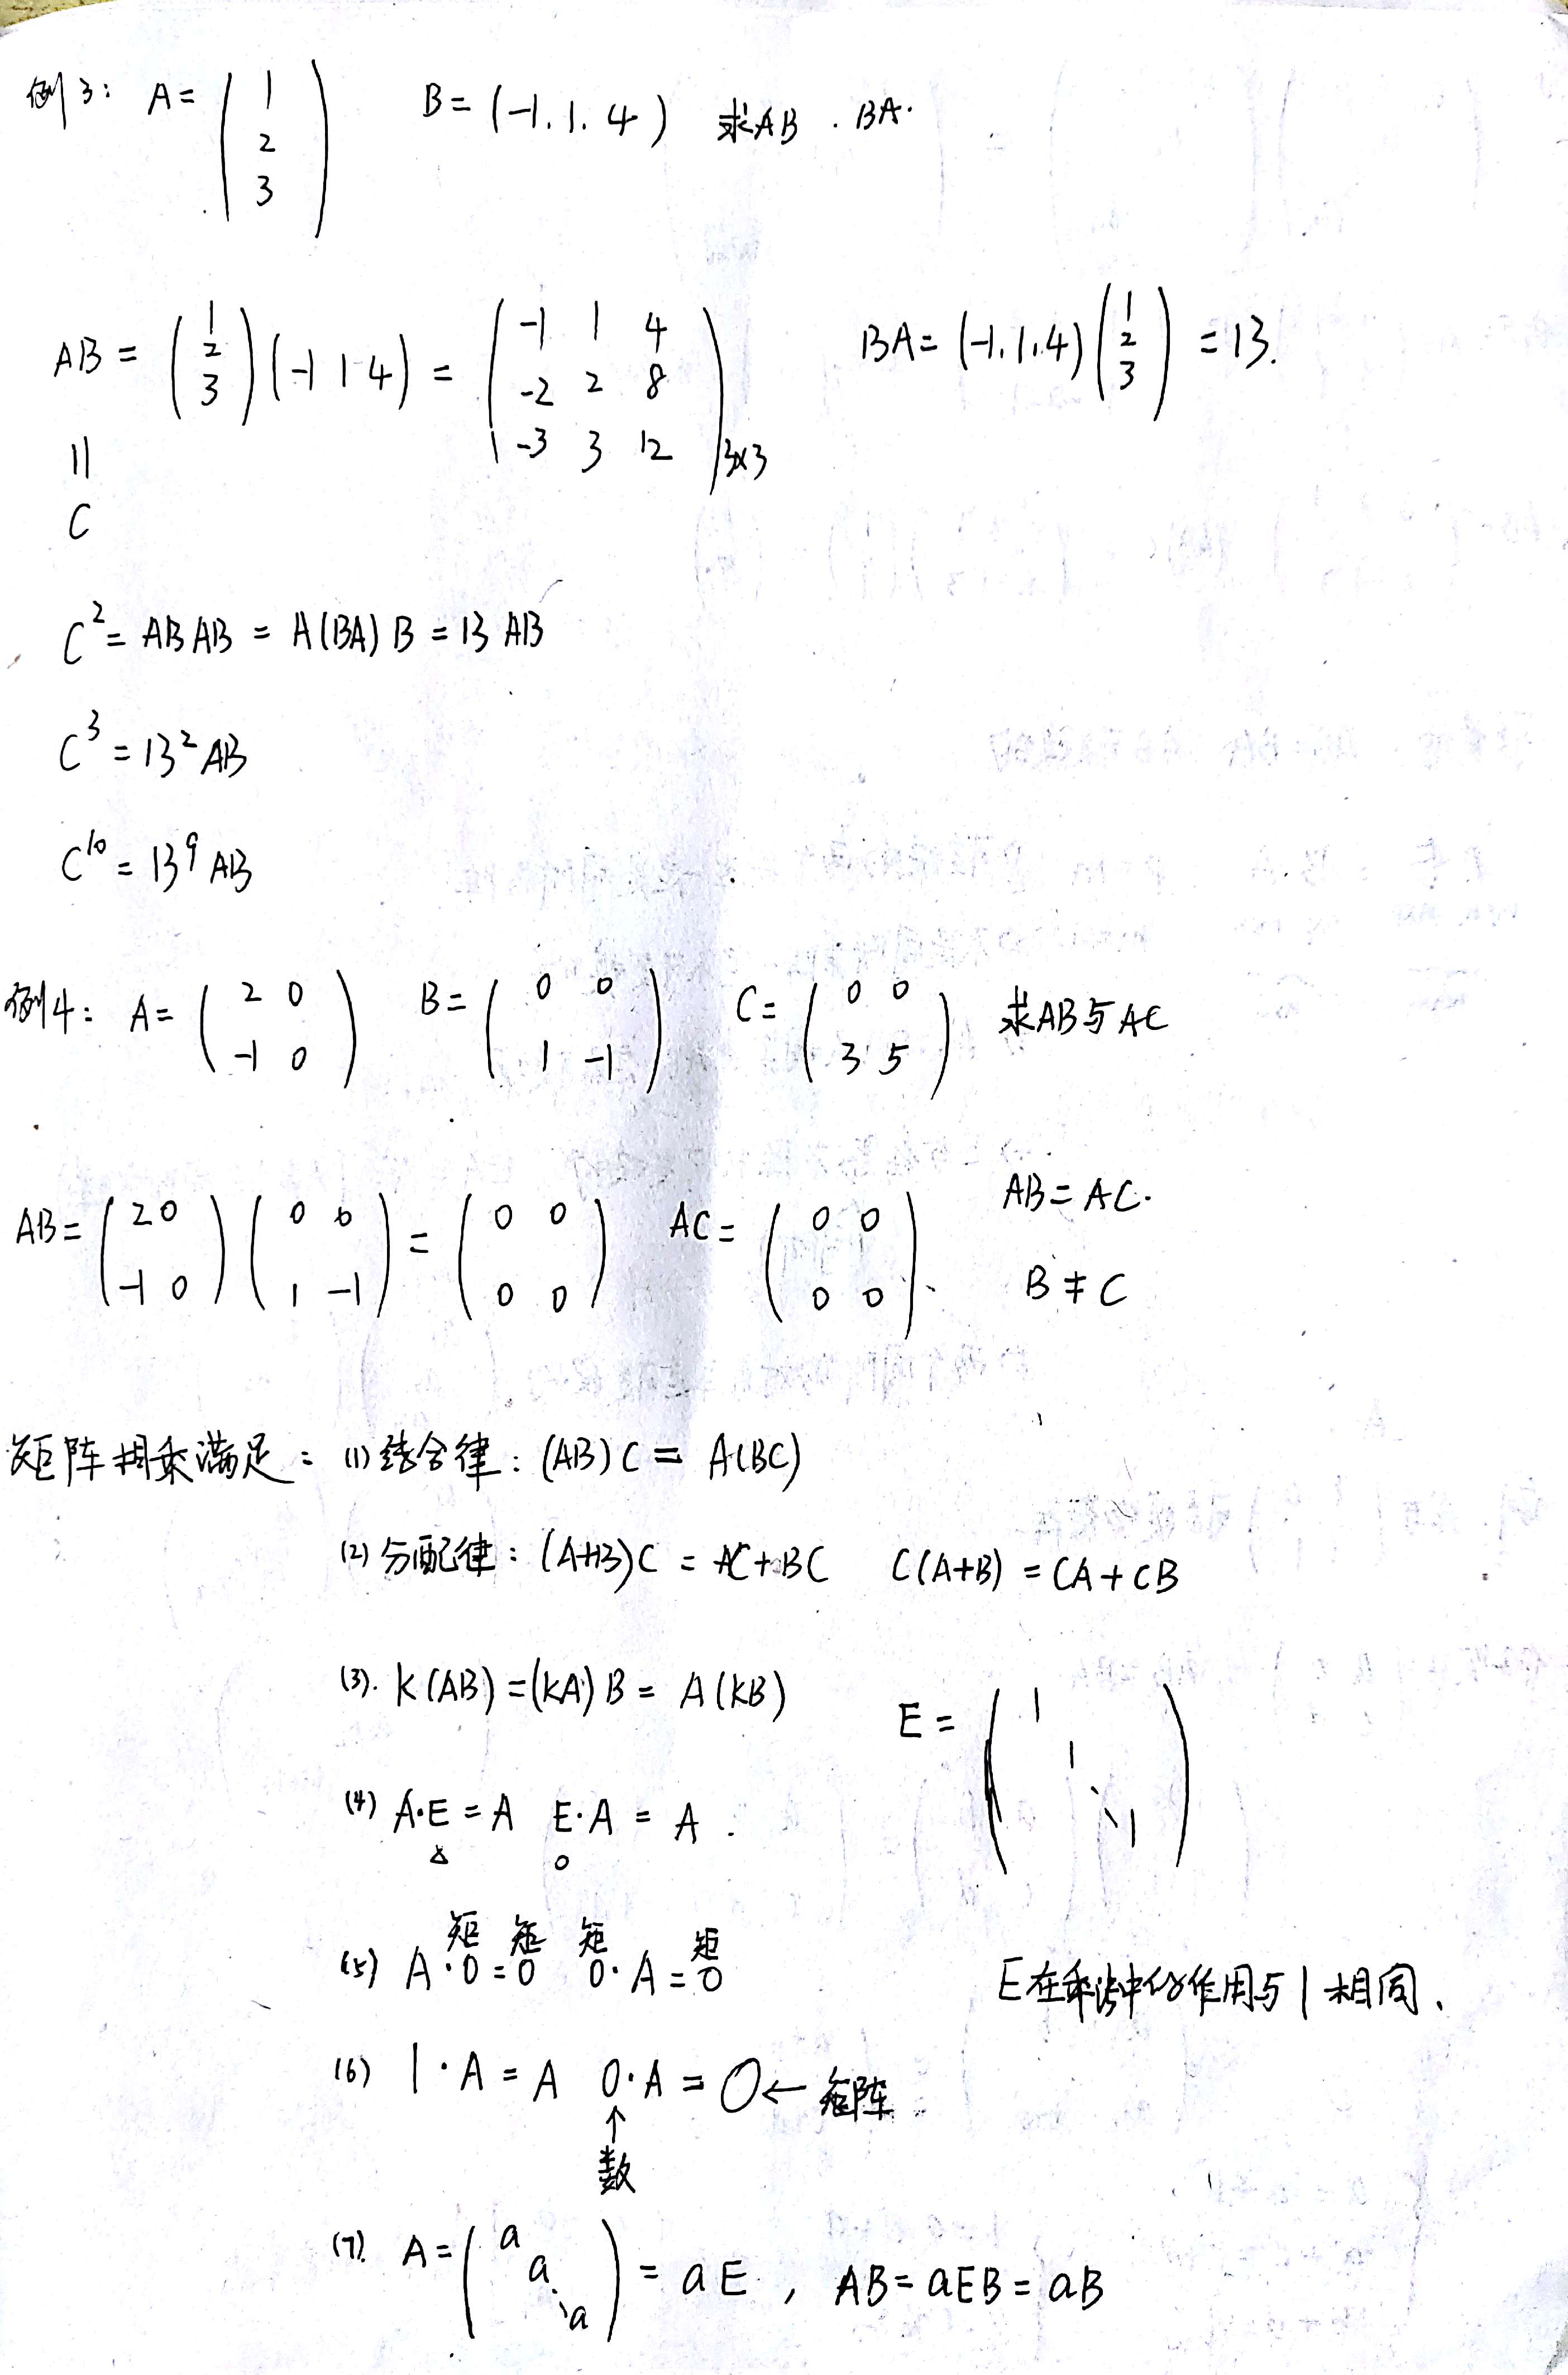 例3: A = ( 1 2 3 ) B = (-1. 1. 4) 求AB . BA.
AB = ( 1 2 3 ) (-1 1 4) = ( -1 1 4 -2 2 8 -3 3 12 ) 3×3 BA = (-1. 1. 4) ( 1 2 3 ) = 13.
||
C
C² = ABAB = A(BA)B = 13 AB
C³ = 13² AB
C¹⁰ = 13⁹ AB
例4: A = ( 2 0 -1 0 ) B = ( 0 0 1 -1 ) C = ( 0 0 3 5 ) 求AB与AC
AB = ( 2 0 -1 0 ) ( 0 0 1 -1 ) = ( 0 0 0 0 ) AC = ( 0 0 0 0 ). AB = AC.
B ≠ C
矩阵相乘满足: (1) 结合律: (AB)C = A(BC)
(2) 分配律: (A+B)C = AC+BC C(A+B) = CA+CB
(3). K(AB) = (KA)B = A(KB)
E = ( 1 1 ⋱ 1 )
(4) A·E = A E·A = A .
△ ○
矩 矩 矩 矩
(5) A·0 = 0 0·A = 0
E在乘法中的作用与1相同.
(6) 1·A = A 0·A = O ← 矩阵
↑
数
(7). A = ( a a ⋱ a ) = aE , AB = aEB = aB